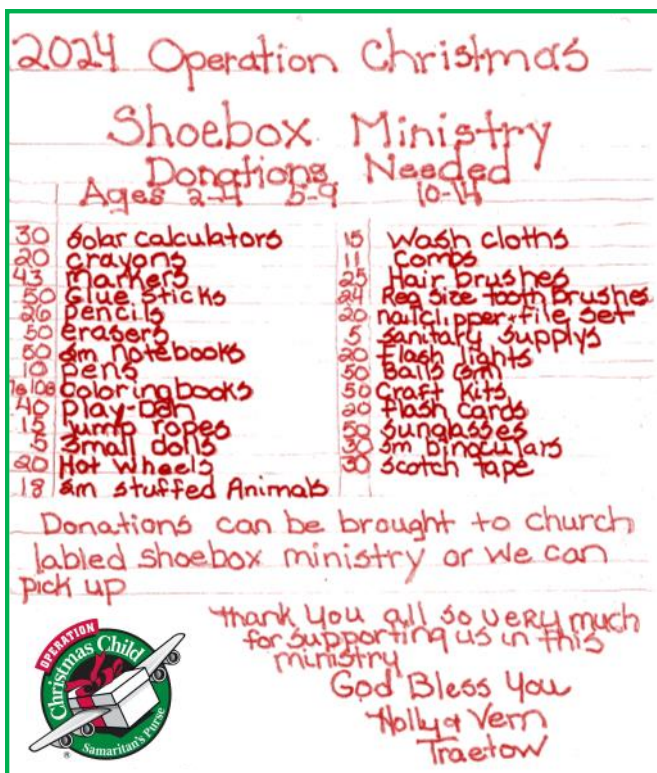 2024 Operation Christmas
Shoebox Ministry
Donations Needed
Ages 2-4 5-9 10-14
30 solar calculators
20 crayons
43 markers
50 Glue Sticks
26 pencils
50 erasers
50 sm notebooks
10 pens
coloring books
40 Play-Doh
15 jump ropes
5 small dolls
20 Hot Wheels
18 sm stuffed Animals
15 Wash cloths
11 Combs
25 Hair brushes
24 Reg Size tooth brushes
20 nail clipper + file set
5 sanitary supplys
20 flash lights
50 Balls (sm)
50 Craft Kits
20 flash cards
50 sunglasses
30 sm binoculars
30 scotch tape
Donations can be brought to church
labled shoebox ministry or we can
pick up
thank you all so very much
for supporting us in this
ministry
God Bless You
Holly & Vern
Traetow
OPERATION
Christmas Child
Samaritan's Purse
®